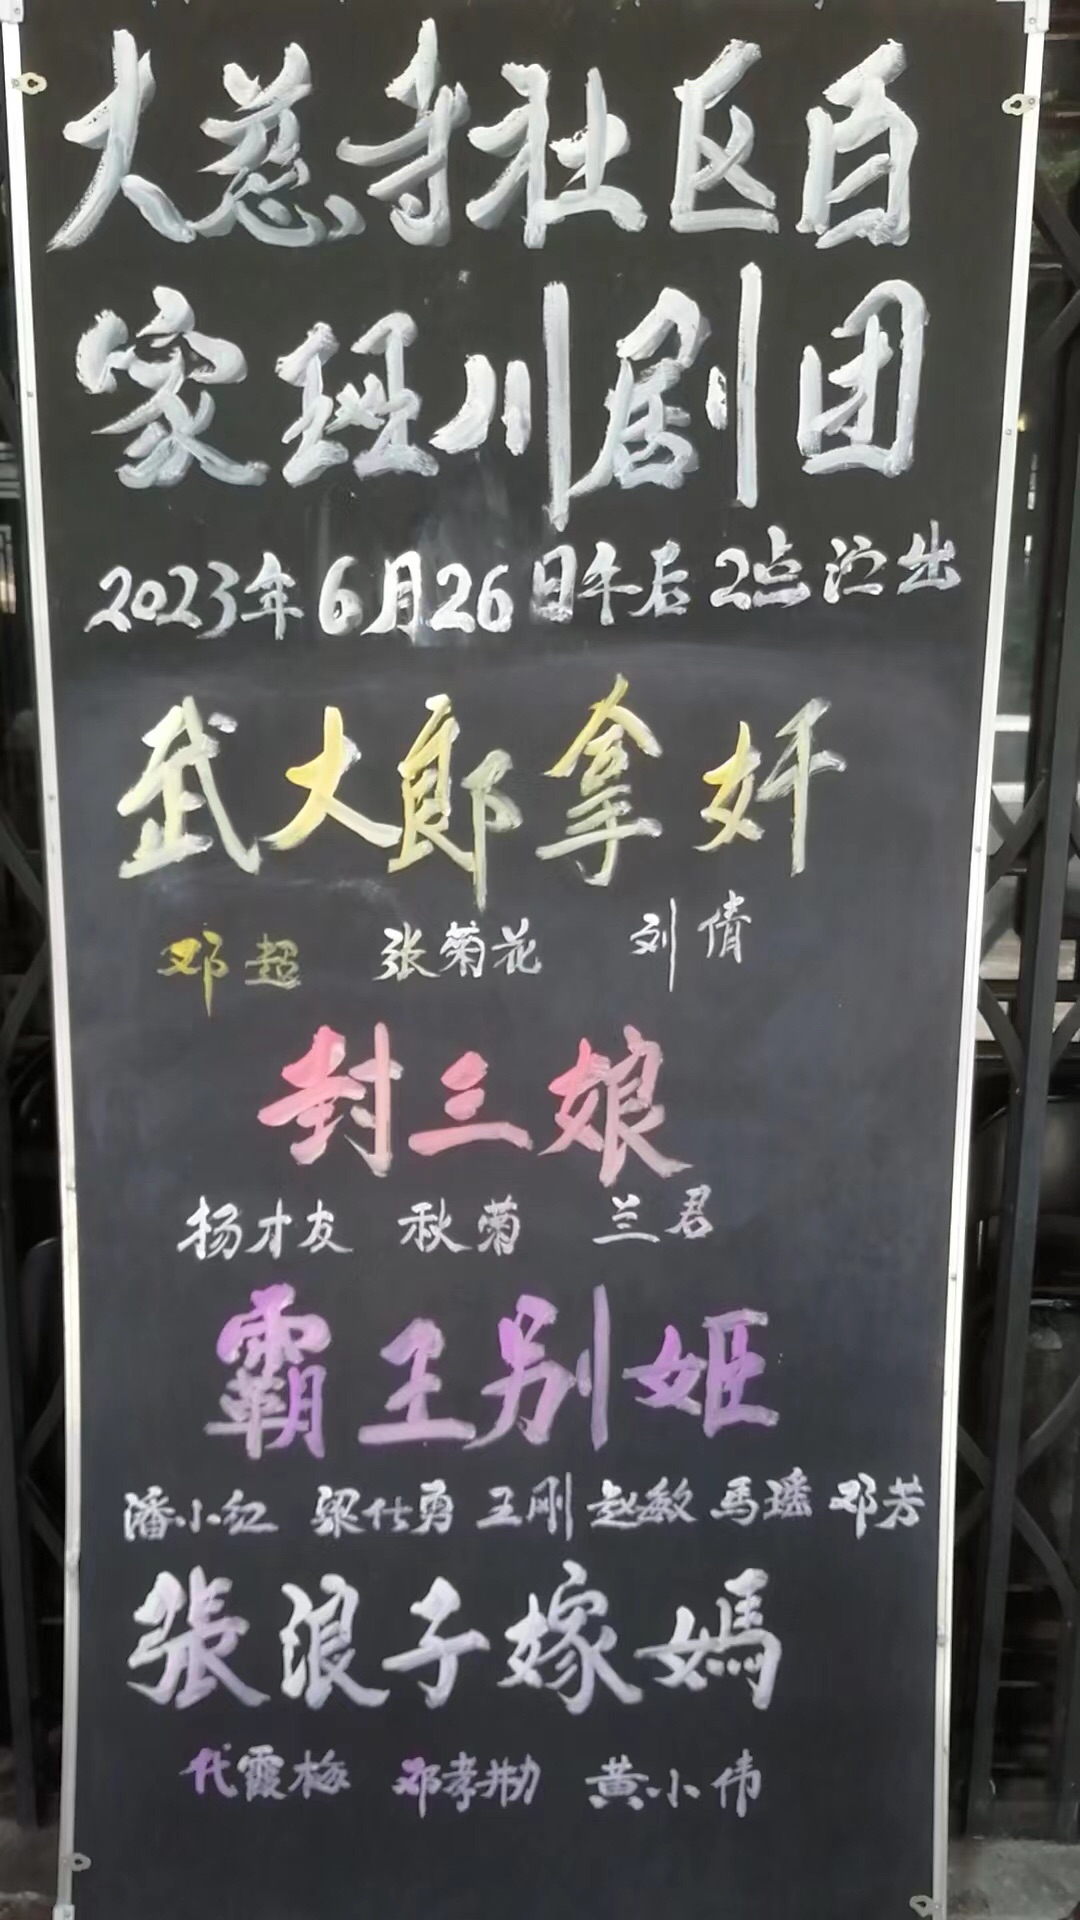 大慈寺社区百
家班川剧团
2023年6月26日午后2点演出
武大郎拿奸
邓超 张菊花 刘倩
封三娘
杨才友 秋菊 兰君
霸王别姬
潘小红 梁仕勇 王刚 赵敏 馬瑶 邓芳
張浪子嫁媽
代霞梅 邓孝勤 黄小伟